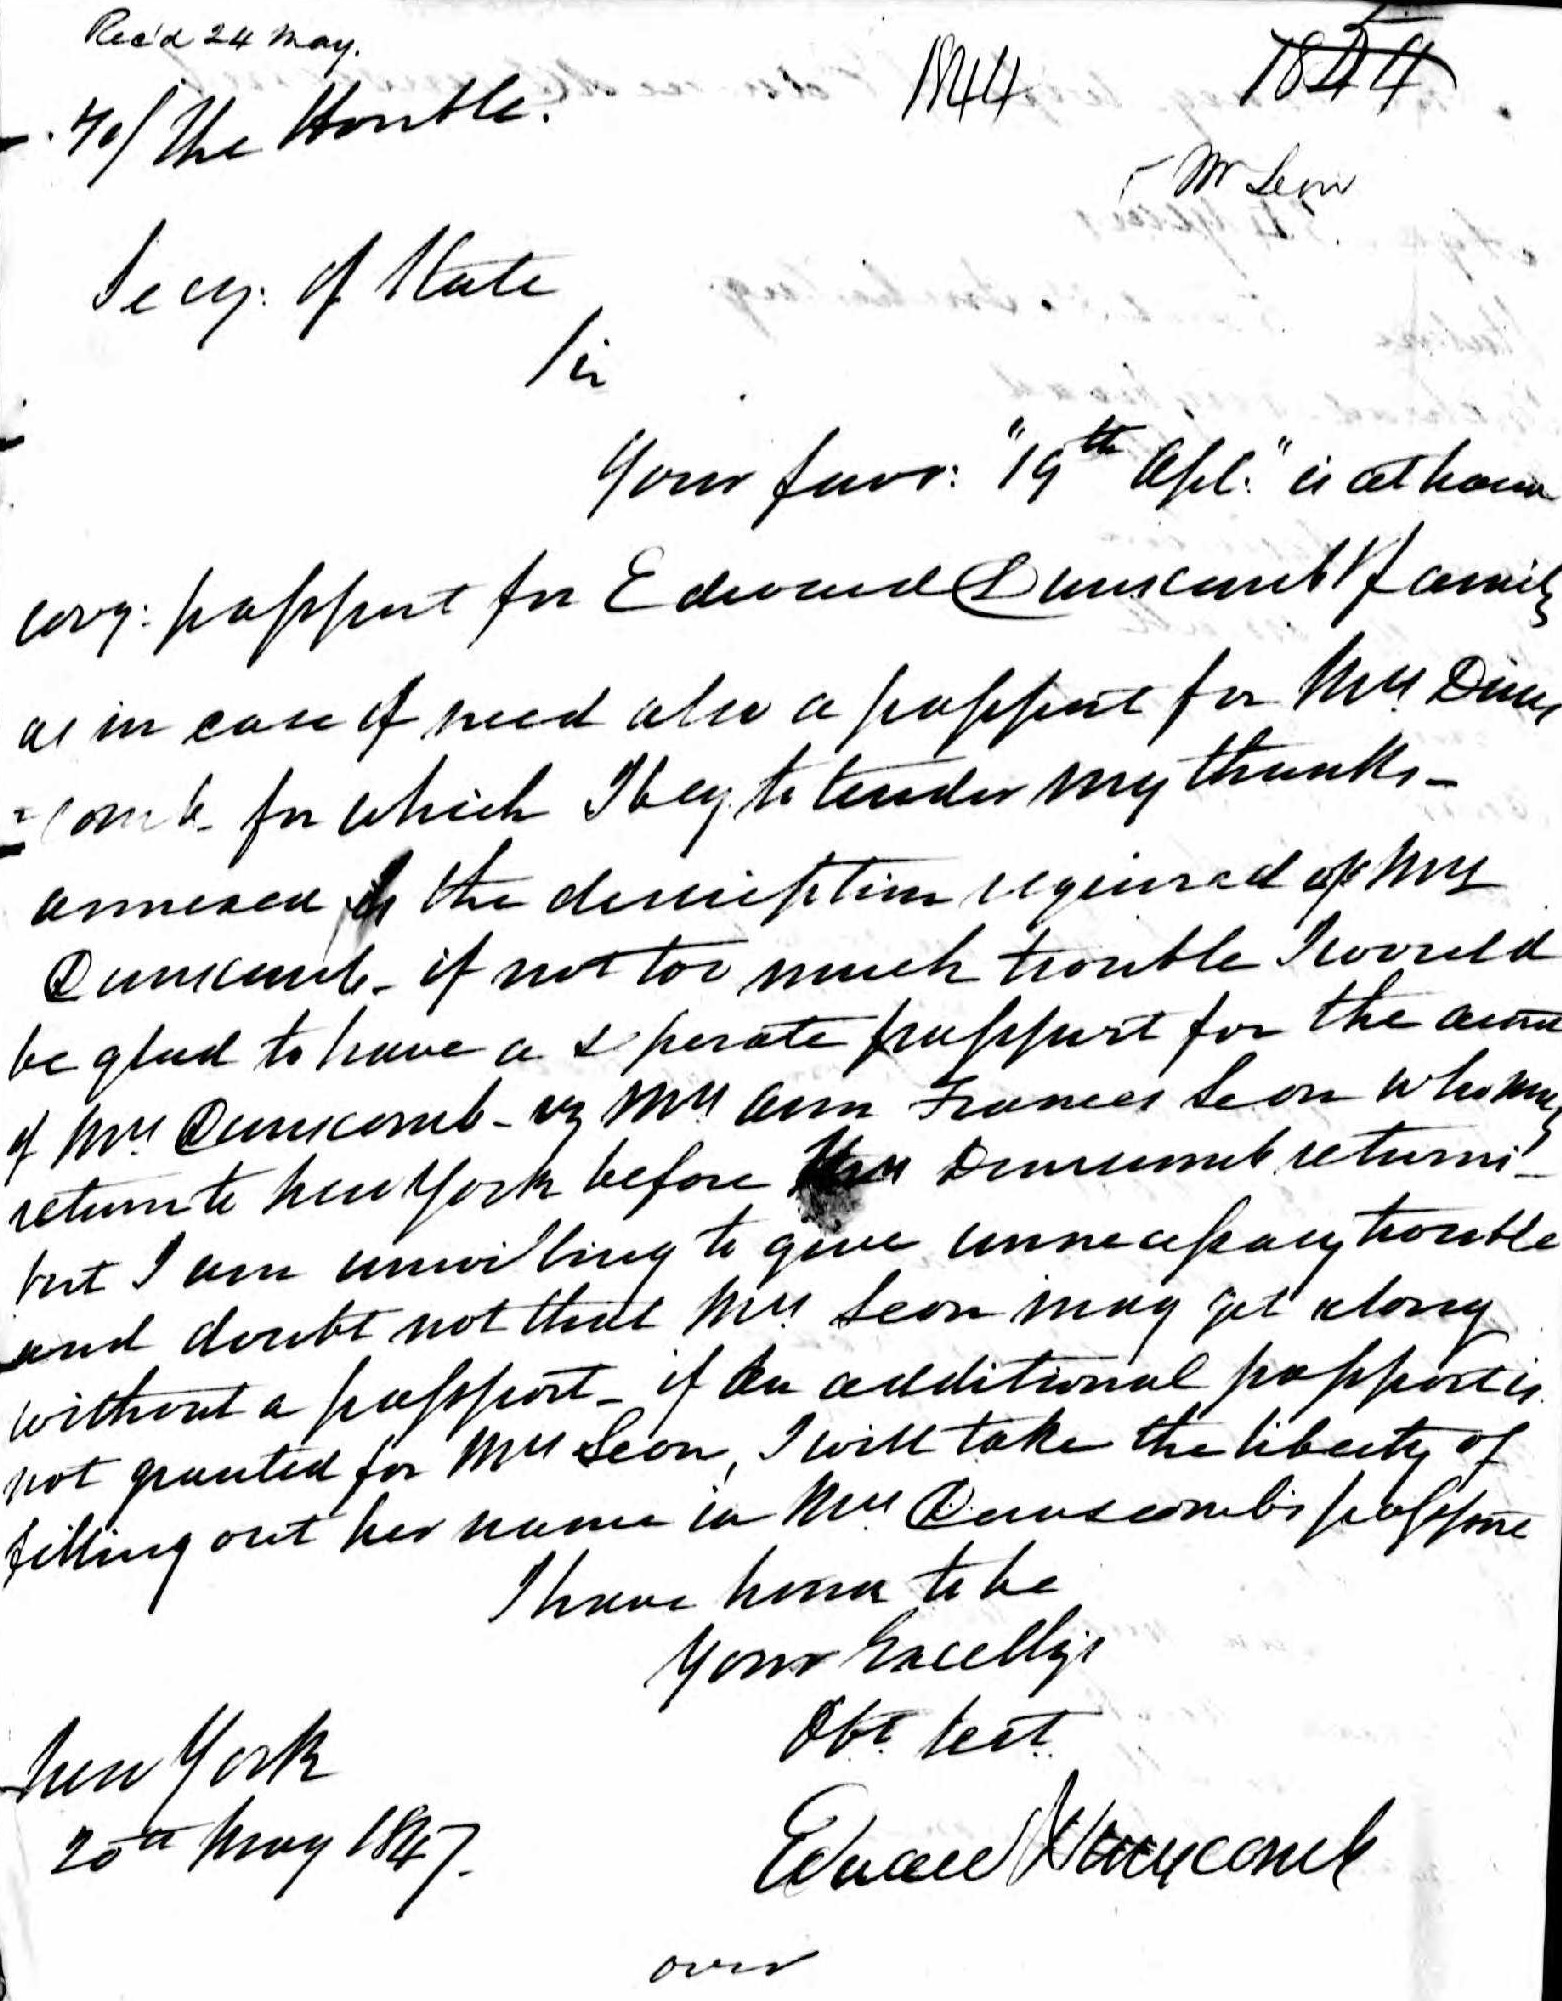 Rec'd 24 May.
1844
1844
To/ The Honble.
Mr Leon
Secy: of State
Sir
Your favor: "19th Apl:" is at hand
covg: passport for Edward Dunscomb & family
as in case of need also a passport for Mrs. Duns
=comb - for which I beg to tender my thanks -
annexed is the description required of Mrs
Dunscomb - if not too much trouble I would
be glad to have a seperate passport for the aunt
of Mrs Dunscomb - vz Mrs Ann Frances Leon who may
return to New York before Mrs Dunscomb returns -
but I am unwilling to give unnecessary trouble
and doubt not that Mrs. Leon may get along
without a passport - if an additional passport is
not granted for Mrs Leon, I will take the liberty of
filling out her name in Mrs. Dunscomb's passport
I have honor to be
Your Excelly's
Obt. Sert.
New York
20th May 1847.
Edward Dunscomb
over